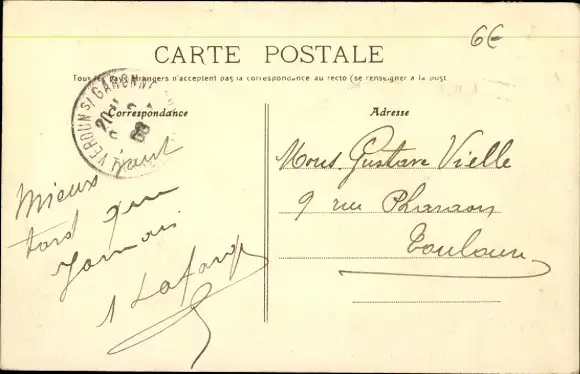 6€
CARTE POSTALE
Tous les pays étrangers n'acceptent pas la correspondance au recto (se renseigner à la post
VERDUN S/ GARONNE
20
08
Correspondance
Adresse
Mieux vaut
tard que
Jamais
Lafarge
Mons. Gustave Vielle
9 rue Pharaon
Toulouse